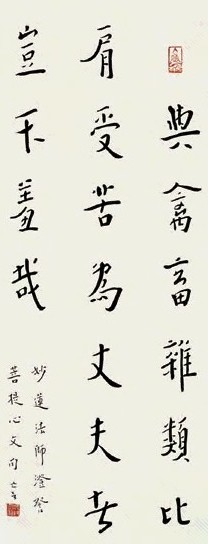 與禽畜雜類比
肩受苦為丈夫者
豈不羞哉
妙蓮法師澄發
菩提心文句